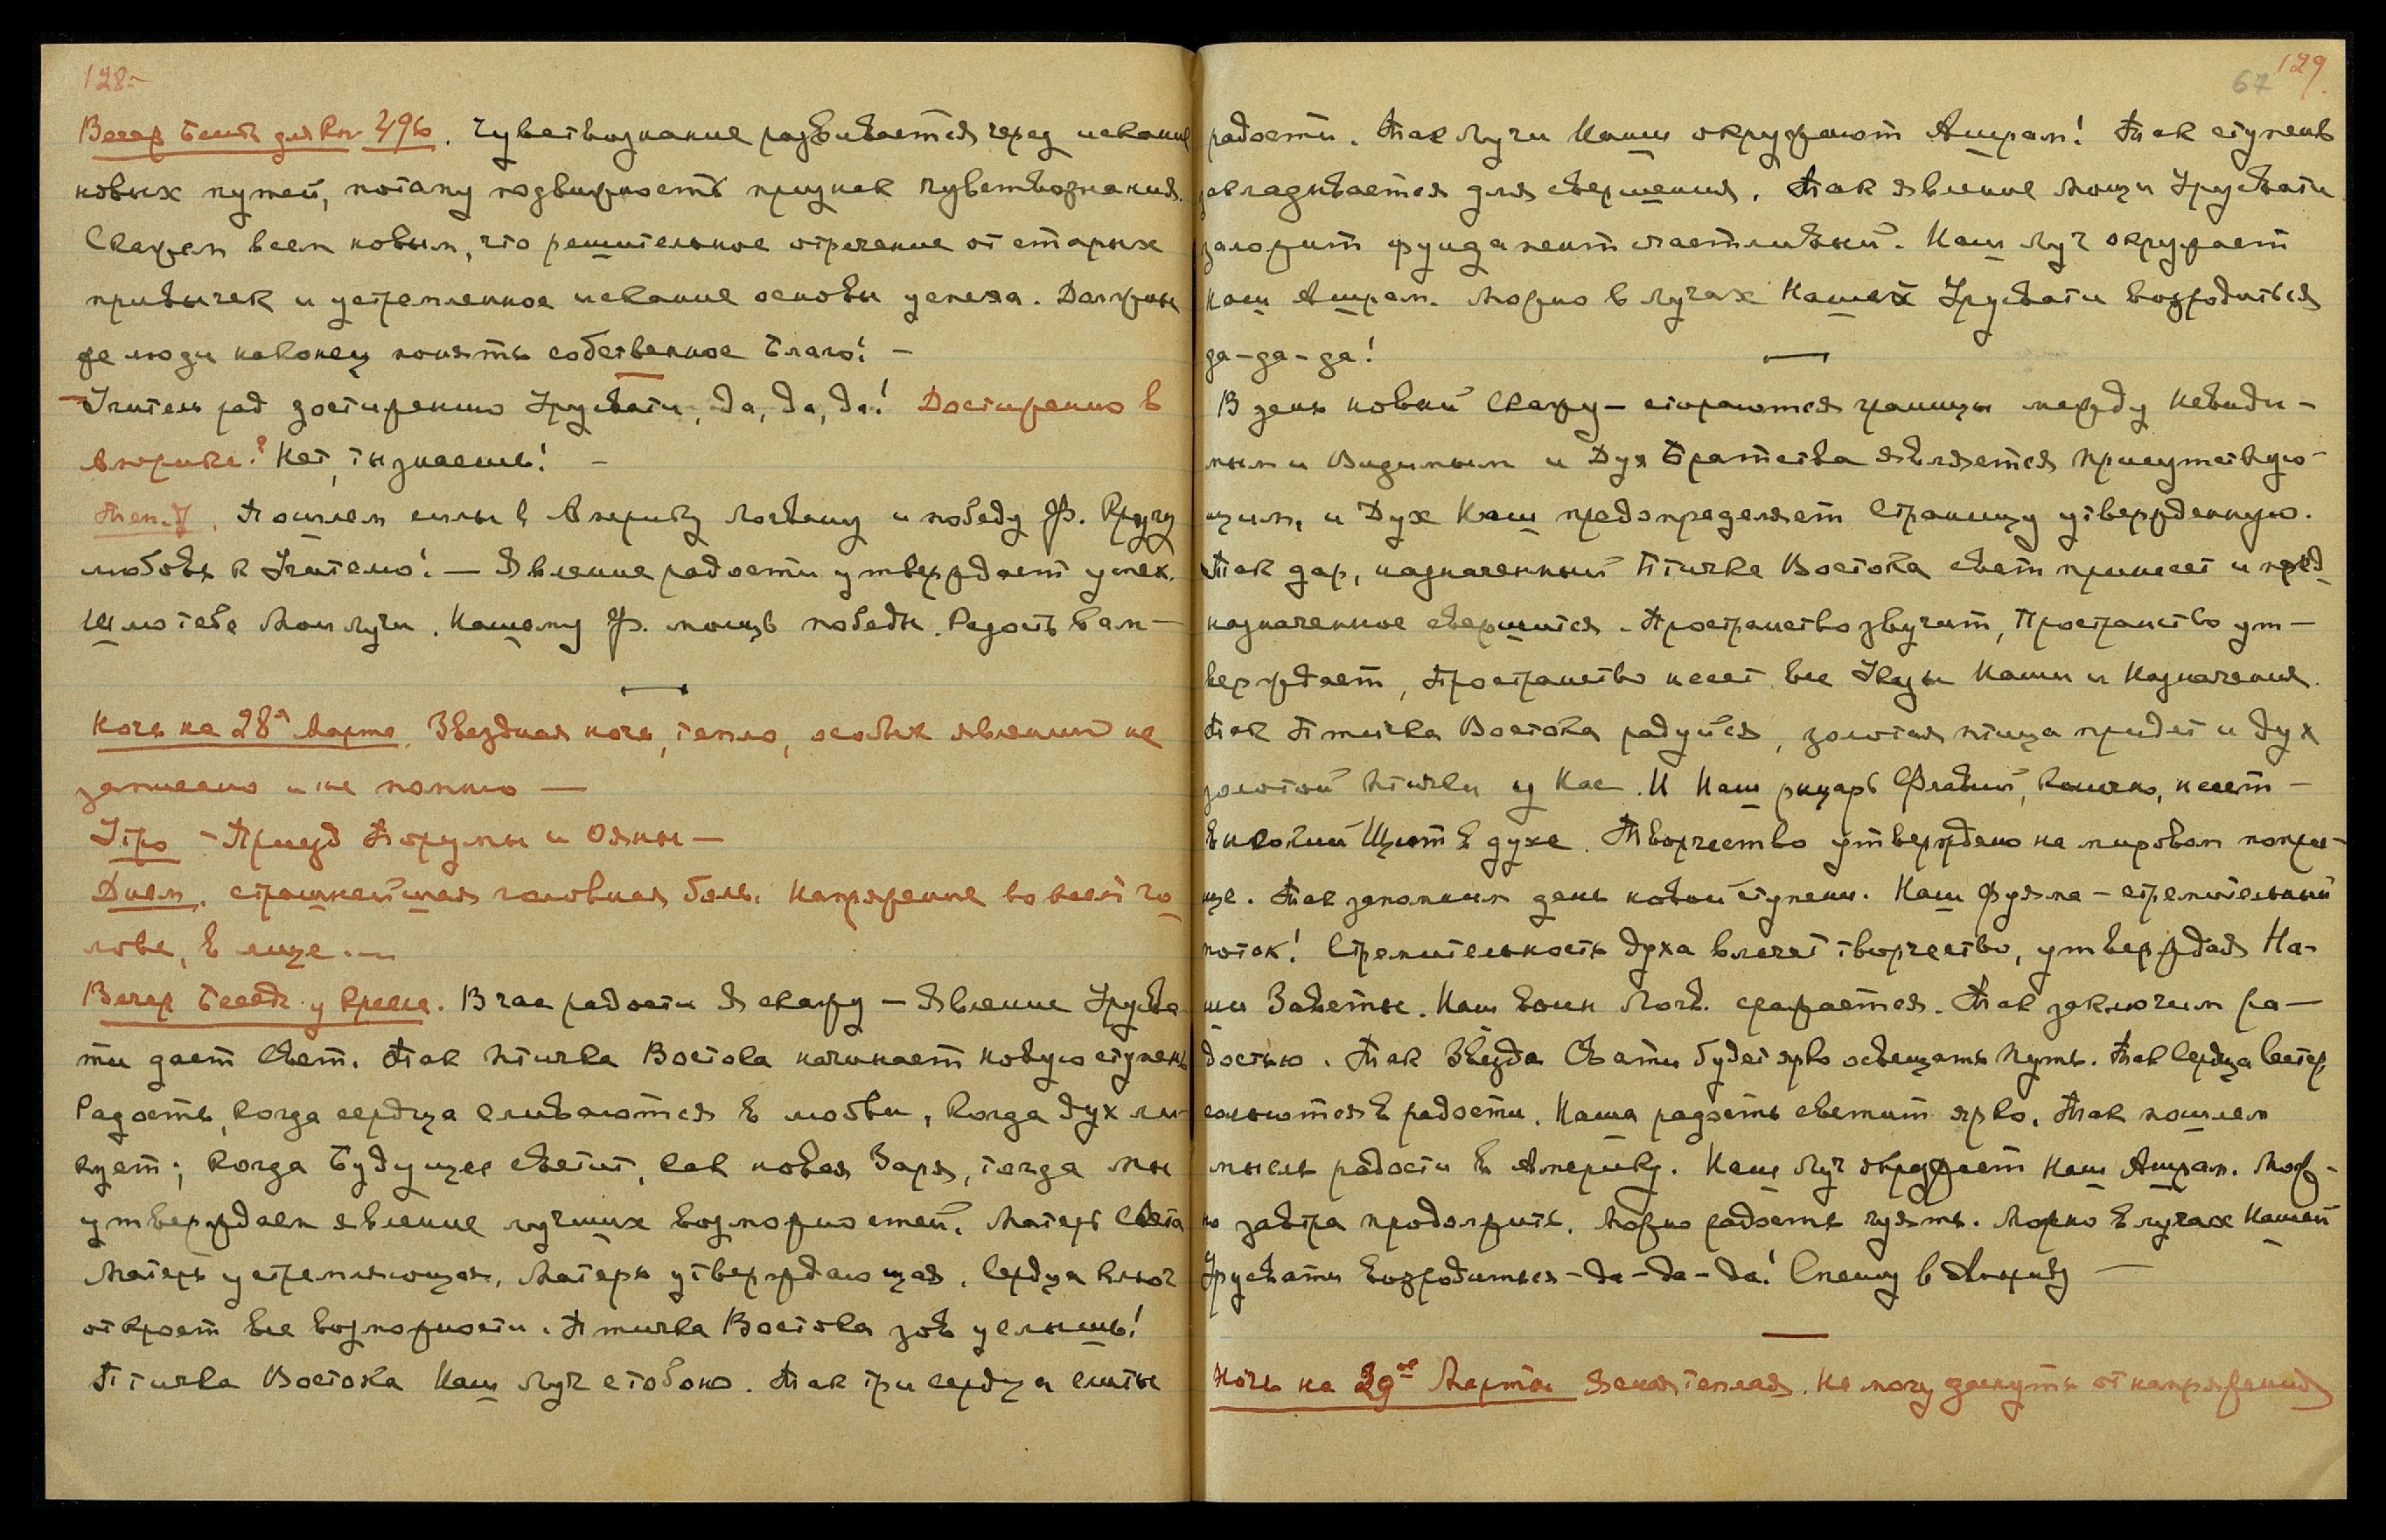 128.
Вечер Беседа для Кн. 496. Чувствознание развивается через искание
новых путей, потому подвижность признак чувствознания.
Скажем всем новым, что решительное отречение от старых
привычек и устремленное искание основы успеха. Должны
же люди наконец понять собственное Благо! –
Учитель рад достижению Урусвати, да, да, да! Достижению в
Америке? Нет, ты знаешь! –
Пошлем силы в Америку Логвану и победу Ф. Кругу
любовь к Учителю! – Явление радости утверждает успех.
Шлю тебе Мои лучи. Нашему Ф. мощь победы. Радость вам –
Ночь на 28ое Марта. Звездная ночь, тепло, особых явлений не
записано и не помню –
Утро – Приезд Порумы и Ояны –
Днем. страшнейшая головная боль. Напряжение во всей го
лове, в лице. –
Вечер Беседа у кресла. В час радости Я скажу – Явление Урусва
ти дает Свет. Так Птичка Востока начинает новую ступень
Радость, когда сердца сливаются в любви, когда дух ли-
кует; когда Будущее светит, как новая Заря, тогда мы
утверждаем явление лучших возможностей. Матерь Света
Матерь устремляющая, Матерь утверждающая. Сердца ключ
откроет все возможности. Птичка Востока зов услышь!
Птичка Востока Наш Луч с тобою. Так три сердца слиты
67 129.
радости. Так Лучи Наши окружают Ашрам! Так ступень
закладывается для свершения. Так явление Мощи Урусвати
заложит фундамент счастливый. Наш Луч окружает
наш Ашрам. Можно в лучах Нашей Урусвати возродиться
да – да – да!
В день новый Скажу – стираются границы между Невиди –
мым и Видимым и Дух Братства является присутствую –
щим, и Дух Наш предопределяет Страницу утвержденную.
Так дар, назначенный Птичке Востока свет принесет и пред
назначенное свершится. Пространство звучит, Пространство ут –
верждает, Пространство несет все Указы Наши и Назначения.
Так Птичка Востока радуйся, золотая птица придет и Дух
золотой птички у Нас. И Наш рыцарь Флавий, конечно, несет –
высокий Щит в духе. Творчество утверждено на мировом попри –
ще. Так запомним день новой ступени. Наш Фуяма – стремительный
поток! Стремительность духа влечет творчество, утверждая На-
ши Заветы. Наш воин Логв. сражается. Так заключим ра –
достью. Так Звезда Свати будет ярко освещать путь. Так Сердца Сестер
сольются в радости. Наша радость светит ярко. Так пошлем
мысль радости в Америку. Наш Луч окружает Наш Ашрам. Мож –
но завтра продолжить. Можно радость чуять. Можно в лучах Нашей
Урусвати возродиться – да – да – да! Спешу в Америку –
Ночь на 29ое Марта Ясная теплая. Не могу заснуть от напряжения